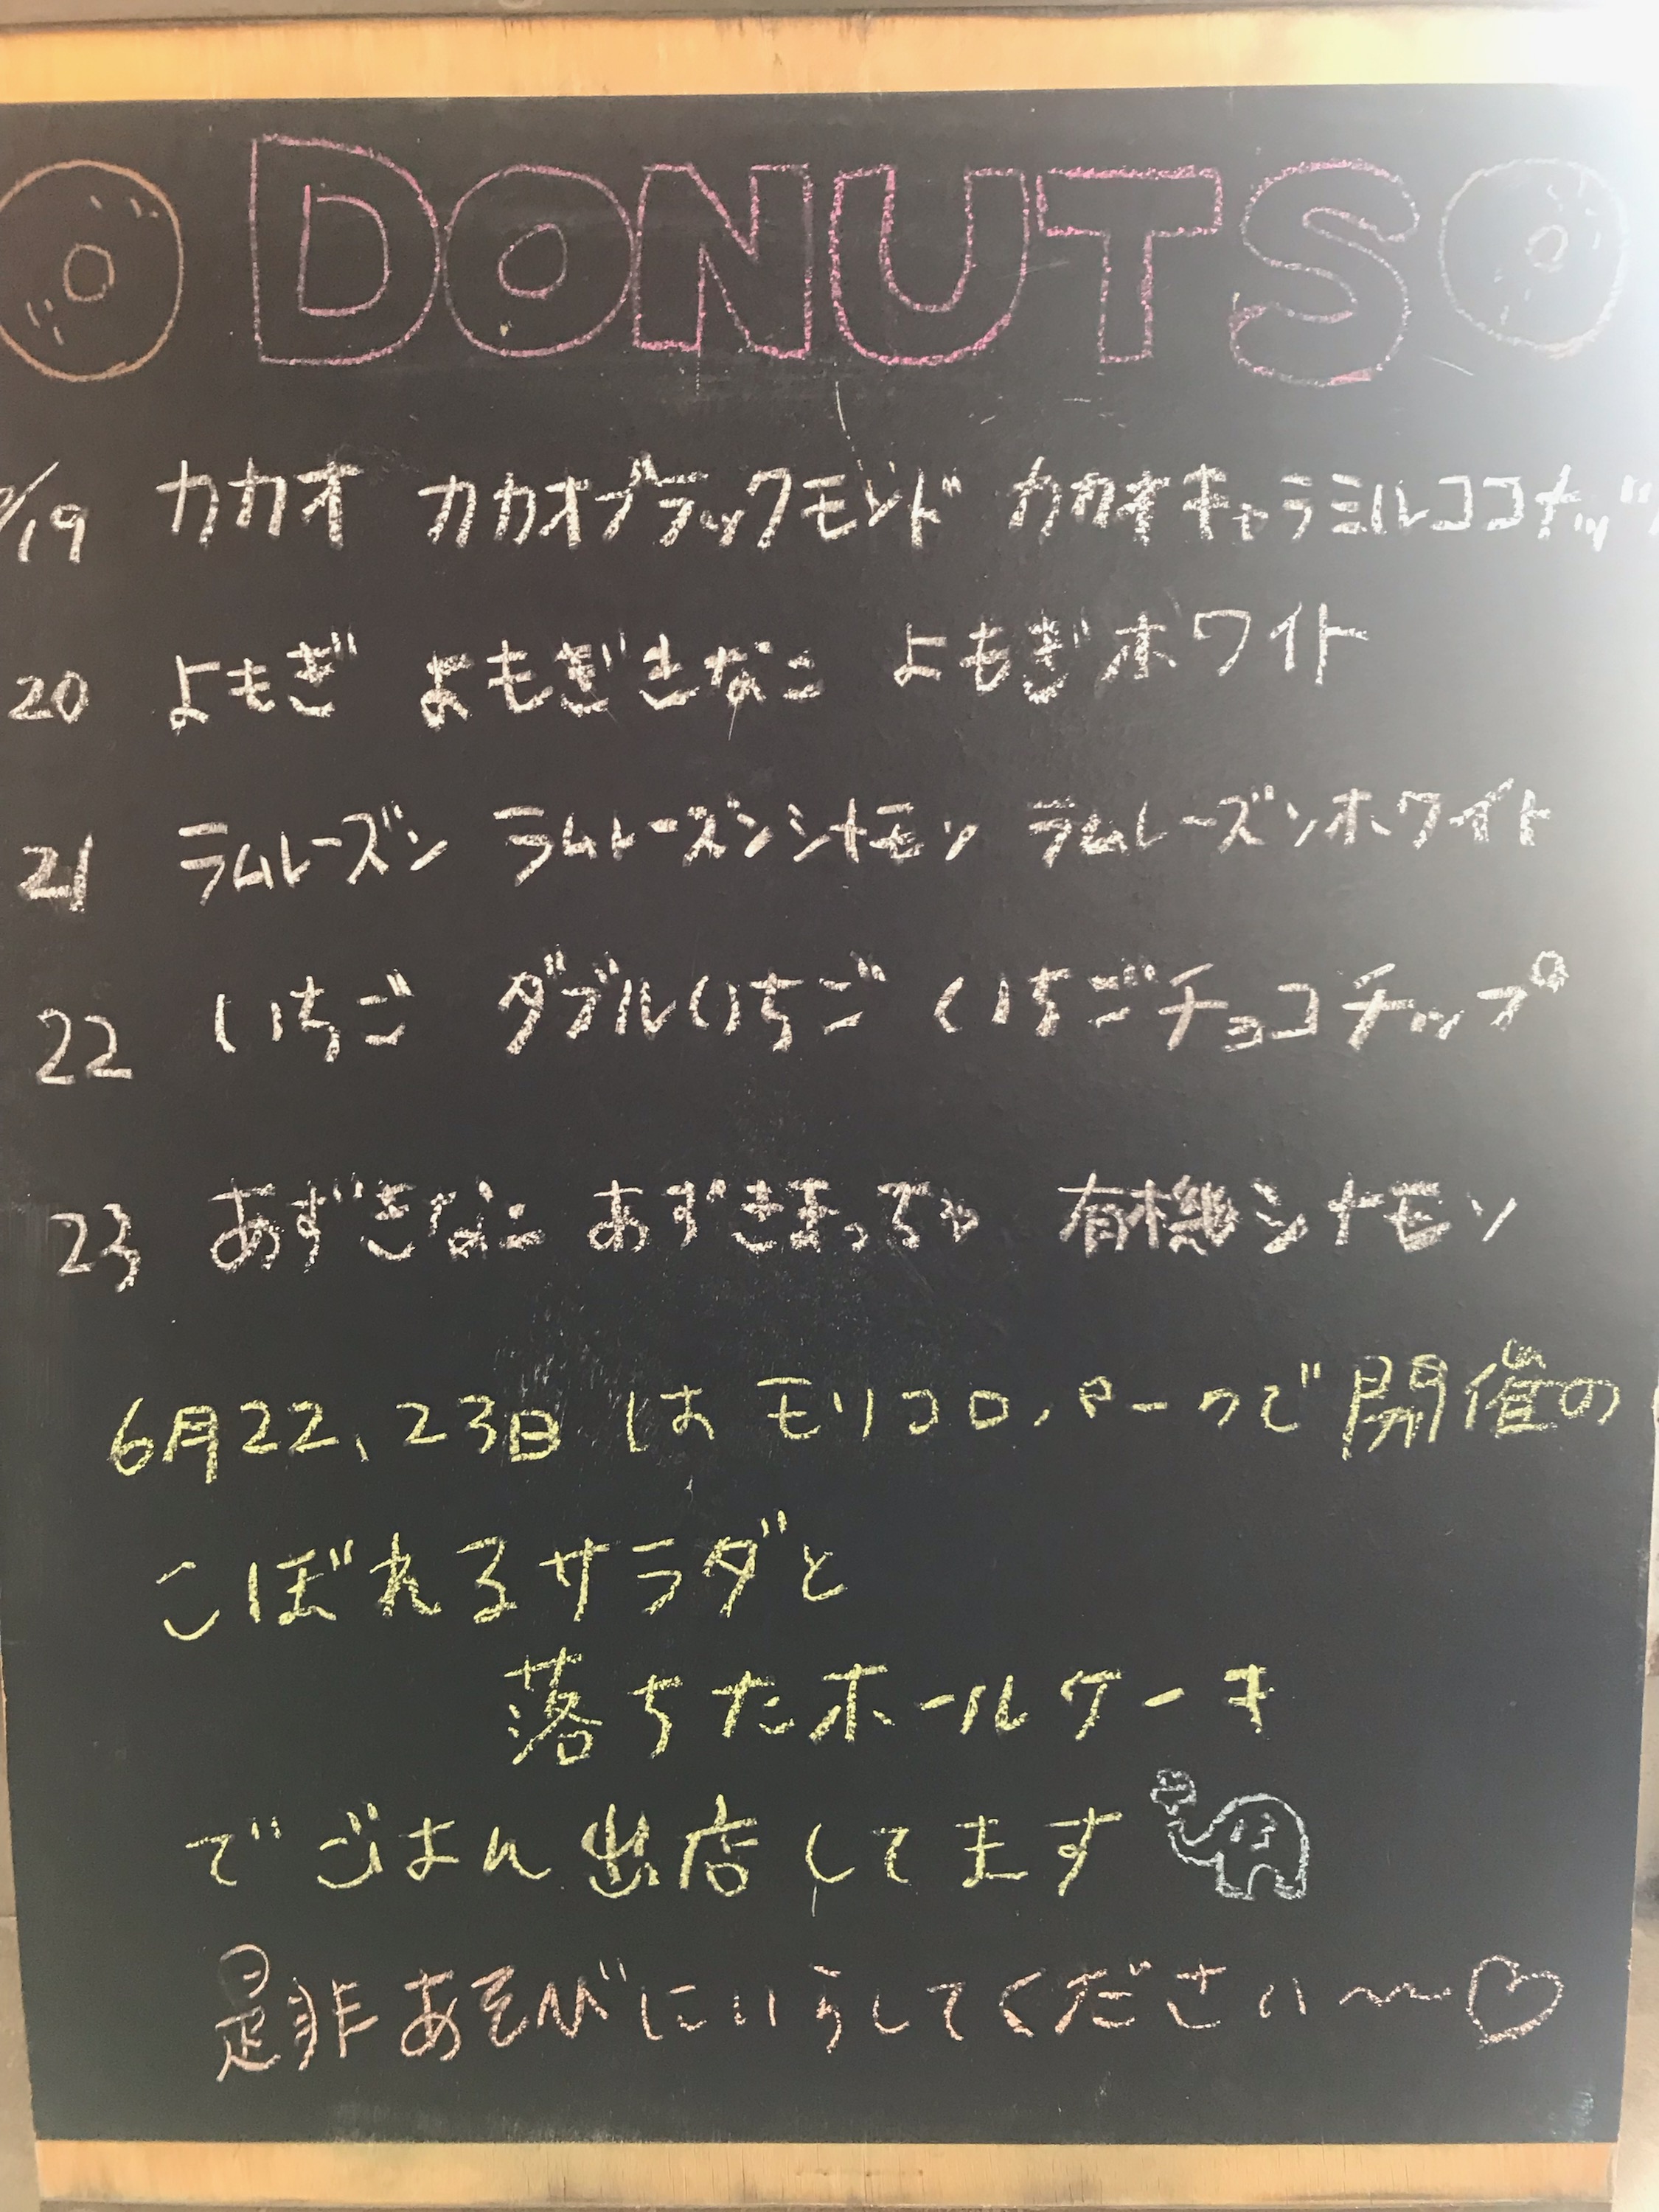 DONUTS
/19 カカオ カカオブラックモンド カカオキャラミルココナッツ
20 よもぎ よもぎきなこ よもぎホワイト
21 ラムレーズン ラムレーズンシナモン ラムレーズンホワイト
22 いちご ダブルいちご いちごチョコチップ
23 あずきなこ あずきまっちゃ 有機シナモン
6月22、23日 は モリコロパークで開催の
こぼれるサラダと
落ちたホールケーキ
で ごはん 出店してます
是非あそびにいらしてください〜♡